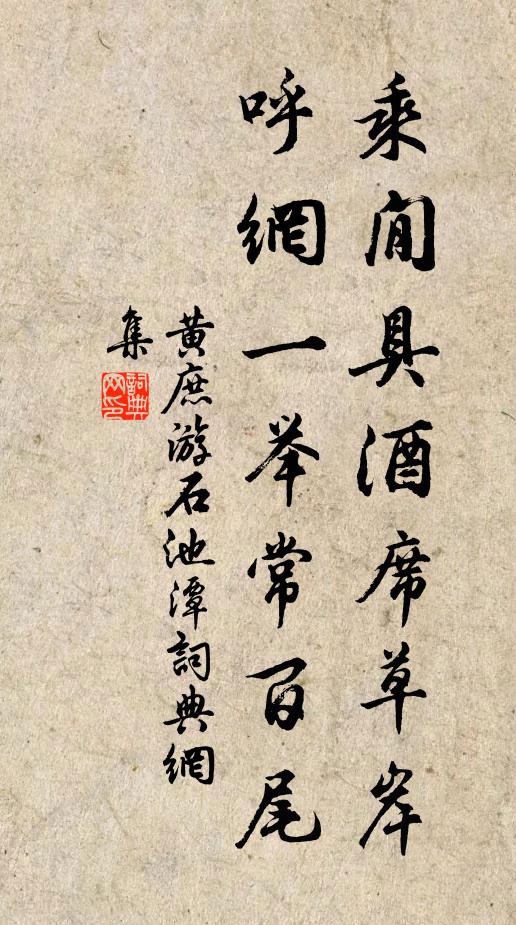 乘閒具酒席草岸
呼網一举常百尾
黄庶游石池潭詞典網
集
詞典網印